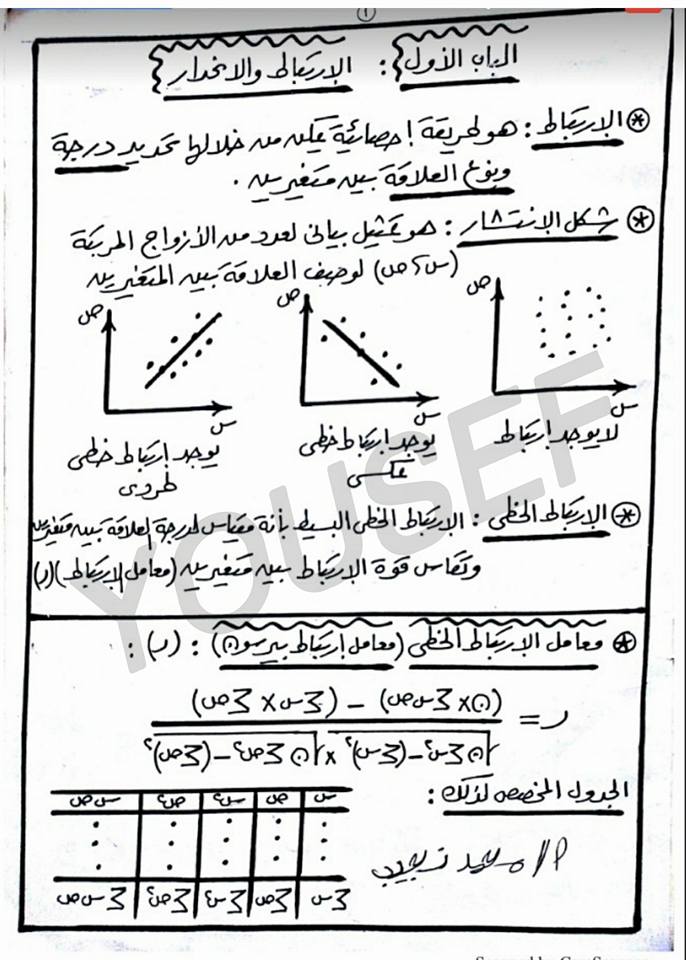 ١
الباب الأول : الارتباط والانحدار
* الارتباط : هو طريقة إحصائية يمكن من خلالها تحديد درجة
ونوع العلاقة بين متغيرين .
* شكل الانتشار : هو تمثيل بياني لعدد من الأزواج المرتبة
(س ، ص) لوصف العلاقة بين المتغيرين
ص
س
لا يوجد ارتباط
ص
س
يوجد ارتباط خطى
عكسى
ص
س
يوجد ارتباط خطى
طردى
* الارتباط الخطى : الارتباط الخطى البسيط بأنة مقياس لدرجة العلاقة بين متغيرين
وتقاس قوة الارتباط بين متغيرين (معامل الارتباط) (ر)
* معامل الارتباط الخطى (معامل ارتباط بيرسون) : (ر) :
ر = (ن × Σ س ص) - (Σ س × Σ ص)
√ن Σ س² - (Σ س)² × √ن Σ ص² - (Σ ص)²
الجدول المخصص لذلك :
س ص س² ص² س ص
Σ س Σ ص Σ س² Σ ص² Σ س ص
YOUSEF